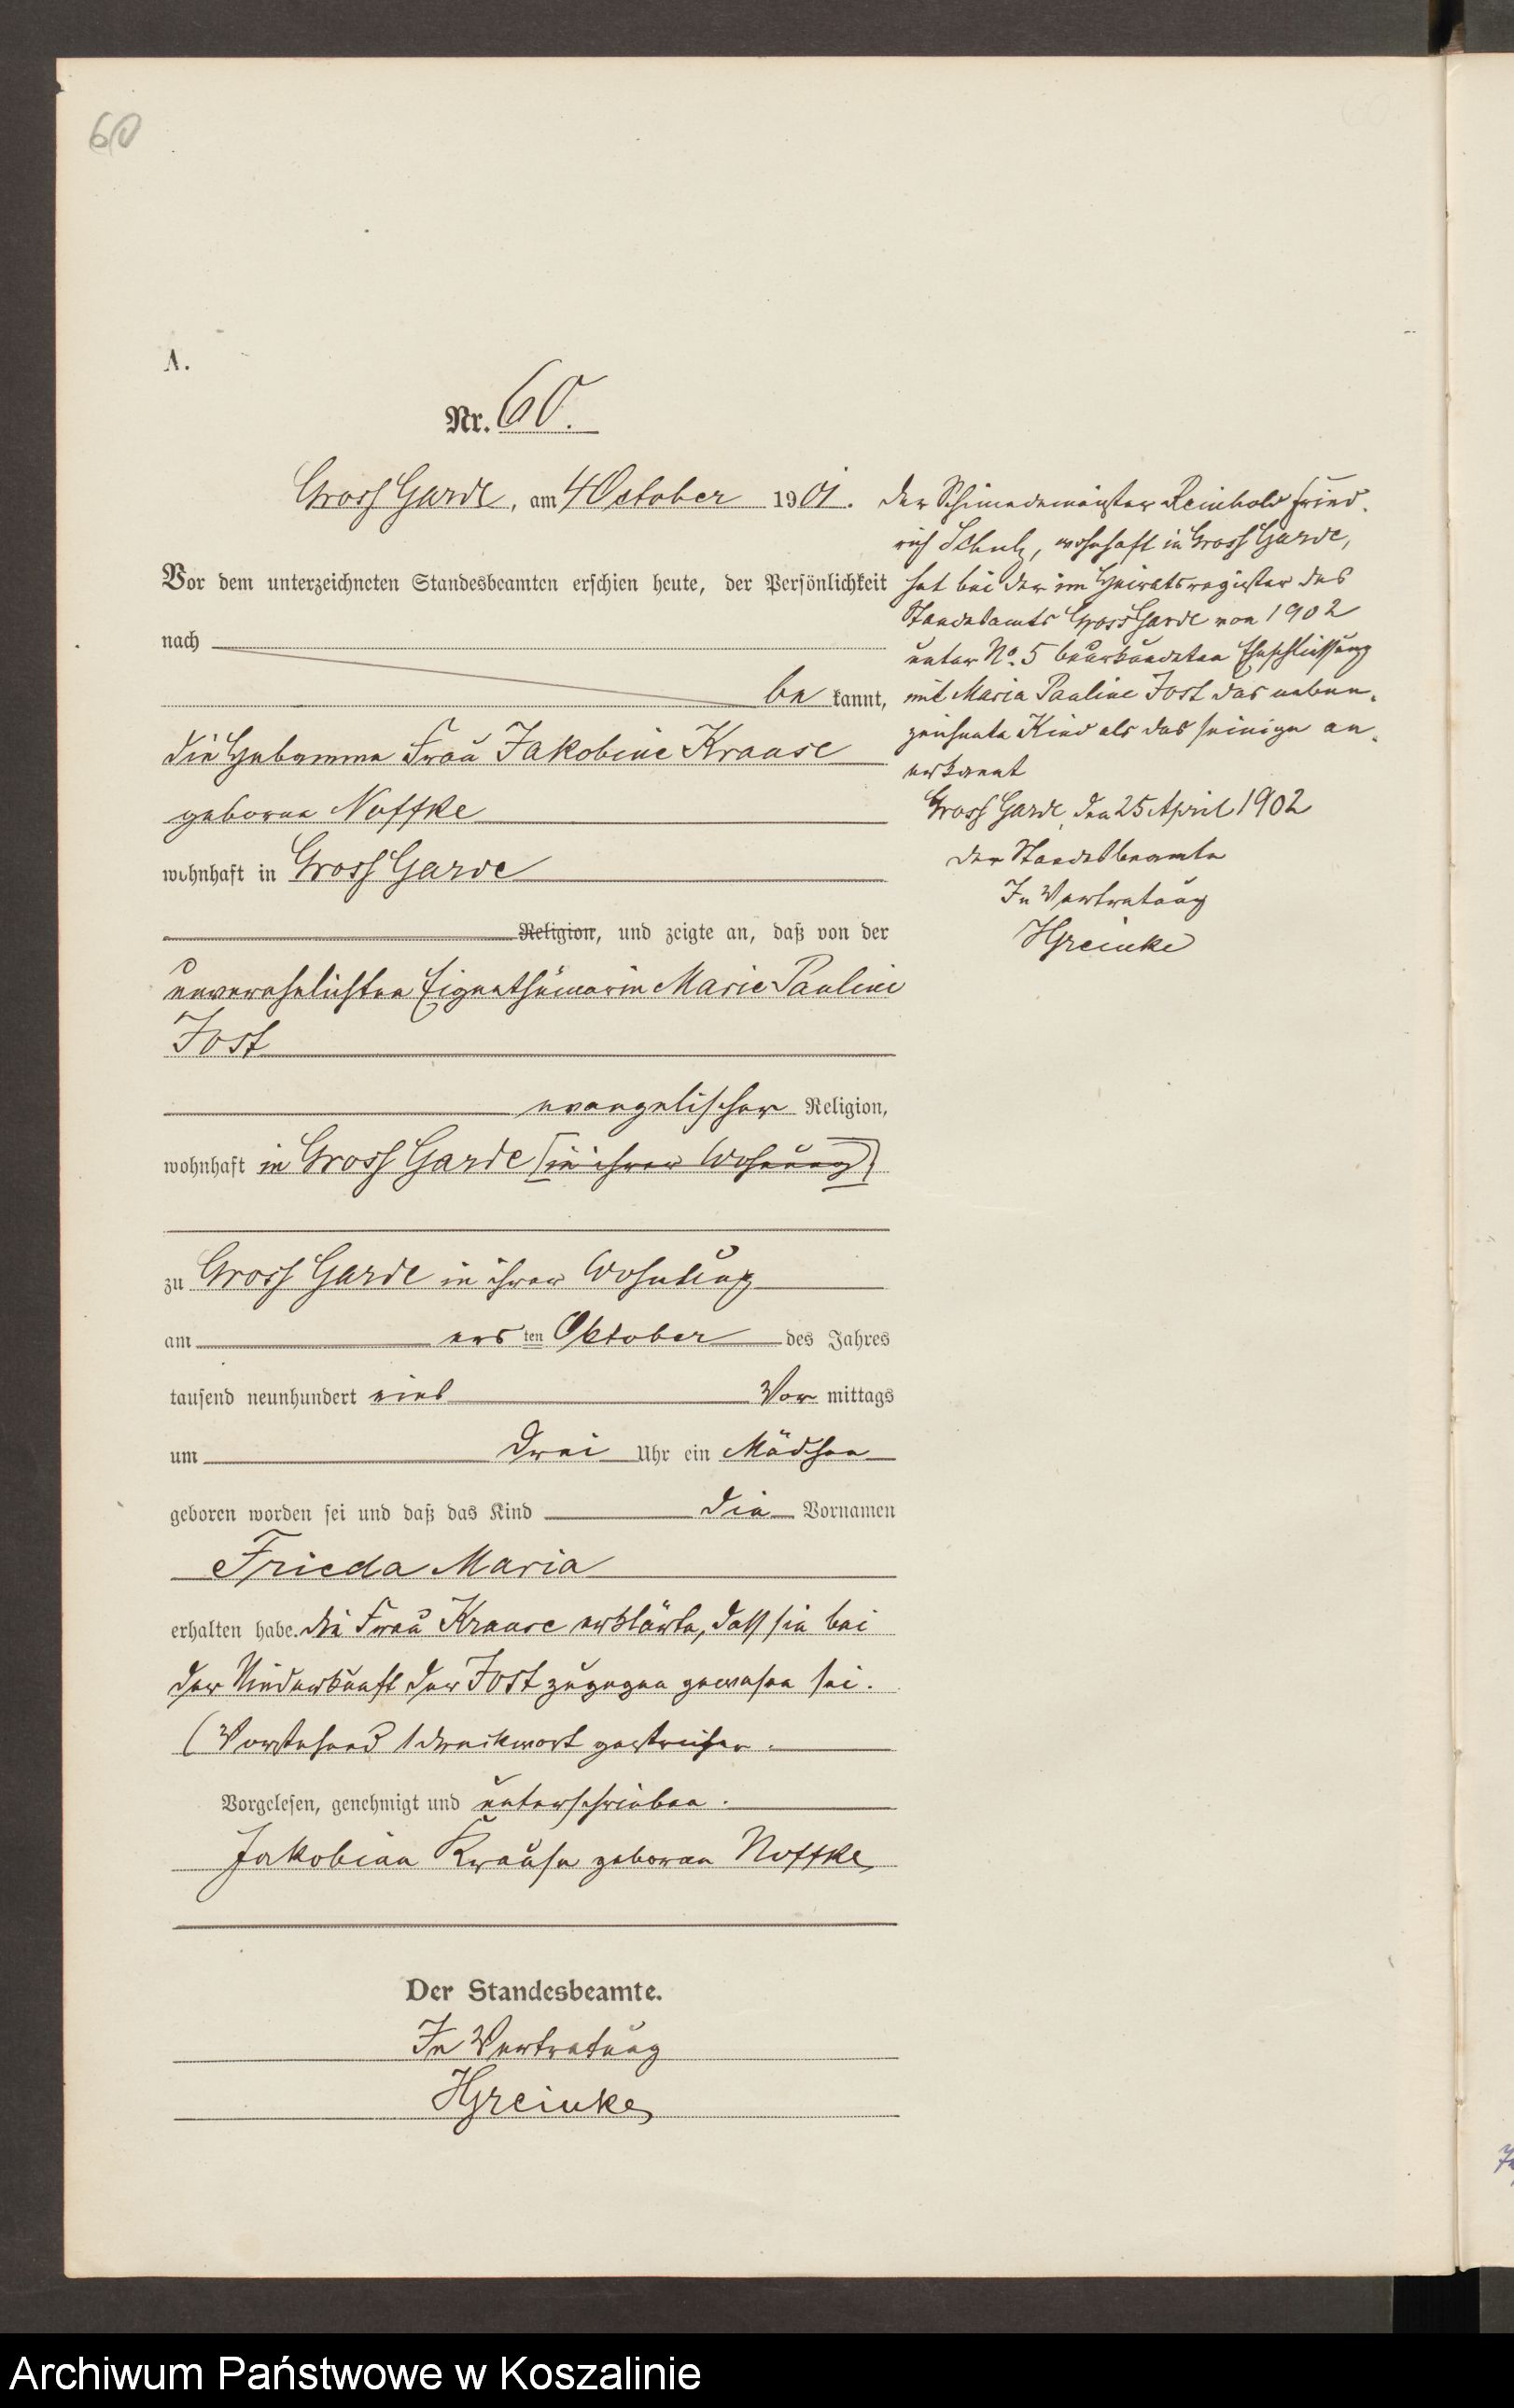 60
A.
Nr. 60.
Gross Garde, am 4 October 1901.
Vor dem unterzeichneten Standesbeamten erschien heute, der Persönlichkeit
nach
be kannt,
die Hebamme Frau Jakobine Krause
geborne Noffke
wohnhaft in Gross Garde
Religion, und zeigte an, daß von der
unverehelichten Eigenthümerin Marie Pauline
Jost
evangelischer Religion,
wohnhaft in Gross Garde (in ihrer Wohnung)
zu Gross Garde in ihrer Wohnung
am ers ten Oktober des Jahres
tausend neunhundert eins Vor mittags
um drei Uhr ein Mädchen
geboren worden sei und daß das Kind die Vornamen
Frieda Maria
erhalten habe. Die Frau Krause erklärte, daß sie bei
der Niederkunft der Jost zugegen gewesen sei.
(Vorstehend 1 Druckwort gestrichen.
Vorgelesen, genehmigt und unterschrieben.
Jakobine Krause geborne Noffke
Der Standesbeamte.
In Vertretung
HGreinke
Der Schmiedemeister Reinhold Fried-
rich Schulz, wohnhaft in Gross Garde,
hat bei der im Heiratsregister des
Standesamts Gross Garde von 1902
unter No. 5 beurkundeten Eheschließung
mit Maria Pauline Jost das neben-
zeichnete Kind als das seinige an-
erkannt
Gross Garde, den 25 April 1902
Der Standesbeamte
In Vertretung
HGreinke
Archiwum Państwowe w Koszalinie